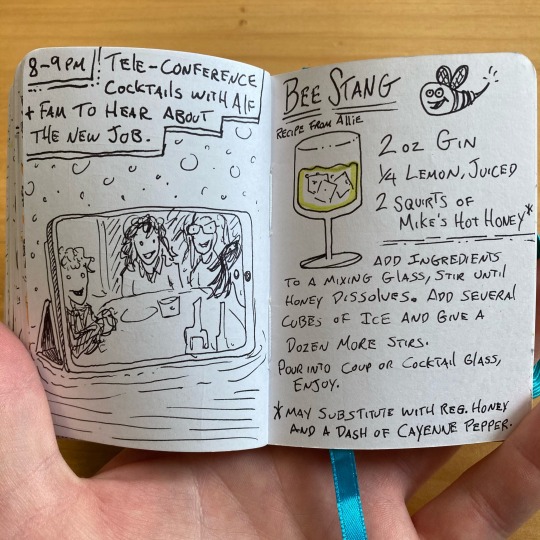 8-9PM
TELE-CONFERENCE
COCKTAILS WITH Alf
+ FAM TO HEAR ABOUT
THE NEW JOB.
BEE STANG
RECIPE FROM Allie
2 oz GIN
1/4 LEMON, JUICED
2 SQUIRTS OF
MIKE'S HOT HONEY*
ADD INGREDIENTS
TO A MIXING GLASS, STIR UNTIL
HONEY DISSOLVES. ADD SEVERAL
CUBES OF ICE AND GIVE A
DOZEN MORE STIRS.
POUR INTO COUP OR COCKTAIL GLASS,
ENJOY.
*MAY SUBSTITUTE WITH REG. HONEY
AND A DASH OF CAYENNE PEPPER.